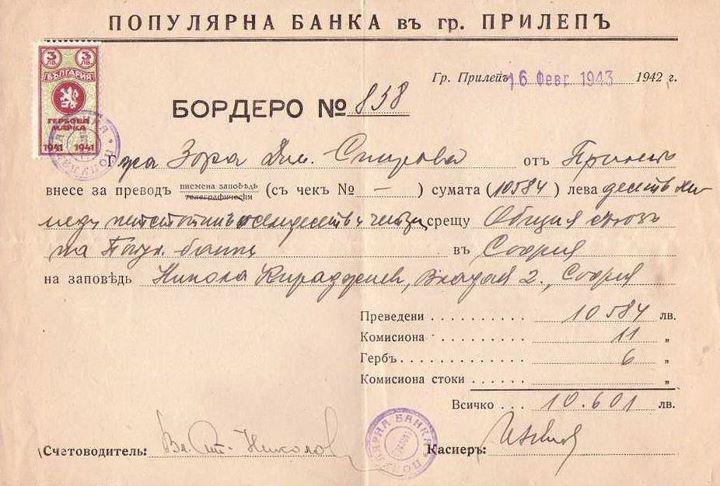 ПОПУЛЯРНА БАНКА въ гр. ПРИЛЕПЪ
3 ЛВ. 3 ЛВ.
БЪЛГАРИЯ
ГЕРБОВА
МАРКА
1941 1941
Гр. Прилепъ 16 Февр. 1943 1942 г.
БОРДЕРО № 858
Г жа Зора Дим. Спирова отъ Прилепъ
внесе за преводъ писмена заповѣдь телеграфически (съ чекъ № — ) сумата (10584) лева десеть хи-
ляди петстотинъ осемдесеть и четири срещу Общия съюзъ
на Поп. банки въ София
на заповѣдь Никола Кираджиев, 2., София
Преведени 10584 лв.
Комисиона 11 „
Гербъ 6 „
Комисиона стоки „
Всичко 10.601 лв.
Счетоводитель: Вл. Ст. Николов Касиеръ: